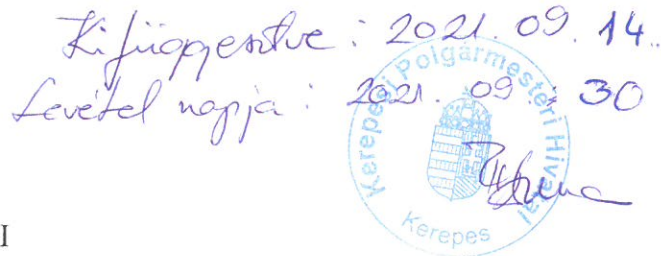 Kifüggesztve : 2021. 09. 14.
Levétel napja : 2021. 09. 30
Kerepesi Polgármesteri Hivatal
Kerepes
I